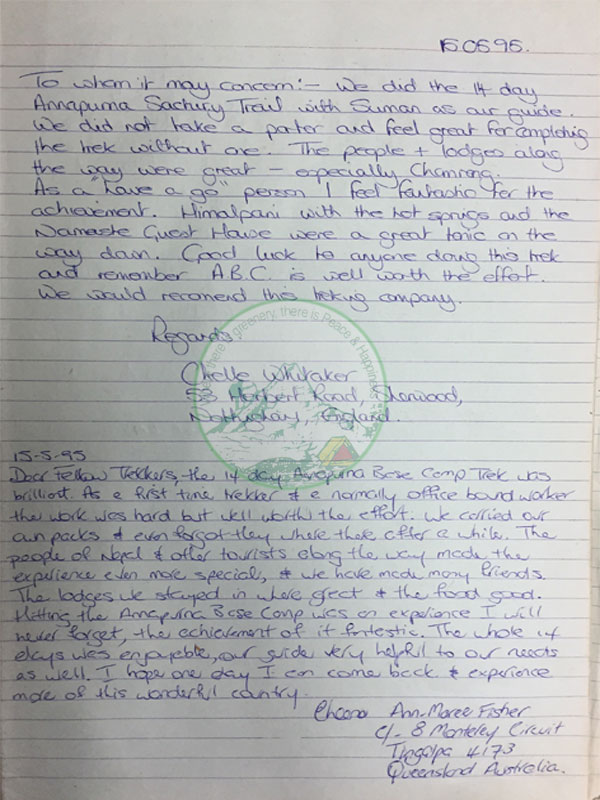 15.05.95.
To whom it may concern:- We did the 14 day
Annapurna Sactury Trail with Suman as our guide.
We did not take a porter and feel great for completing
the trek without one. The people + lodges along
the way were great - especially Chomrong.
As a "have a go" person I feel fantastic for the
achievement. Himalpani with the hot springs and the
Namaste Guest House were a great tonic on the
way down. Good luck to anyone doing this trek
and remember A.B.C. is well worth the effort.
We would recomend this treking company.
Regards
where there is greenery, there is Peace & Happiness
Chelle Whitaker
53 Herbert Road, Sherwood,
Nottingham, England.
15-5-95
Dear Fellow Trekkers, the 14 day Annapurna Base Camp Trek was
brilliant. As a first time trekker & a normally office bound worker
the work was hard but well worth the effort. We carried our
own packs & even forgot they where there after a while. The
people of Nepal & other tourists along the way made the
experience even more special, & we have made many friends.
The lodges we stayed in where great & the food good.
Hitting the Annapurna Base Camp was an experience I will
never forget, the achievement of it fantastic. The whole 14
days was enjoyable, our guide very helpful to our needs
as well. I hope one day I can come back & experience
more of this wonderful country.
Ann-Maree Fisher
c/- 8 Monterey Circuit
Tingalpa 4173
Queensland Australia.